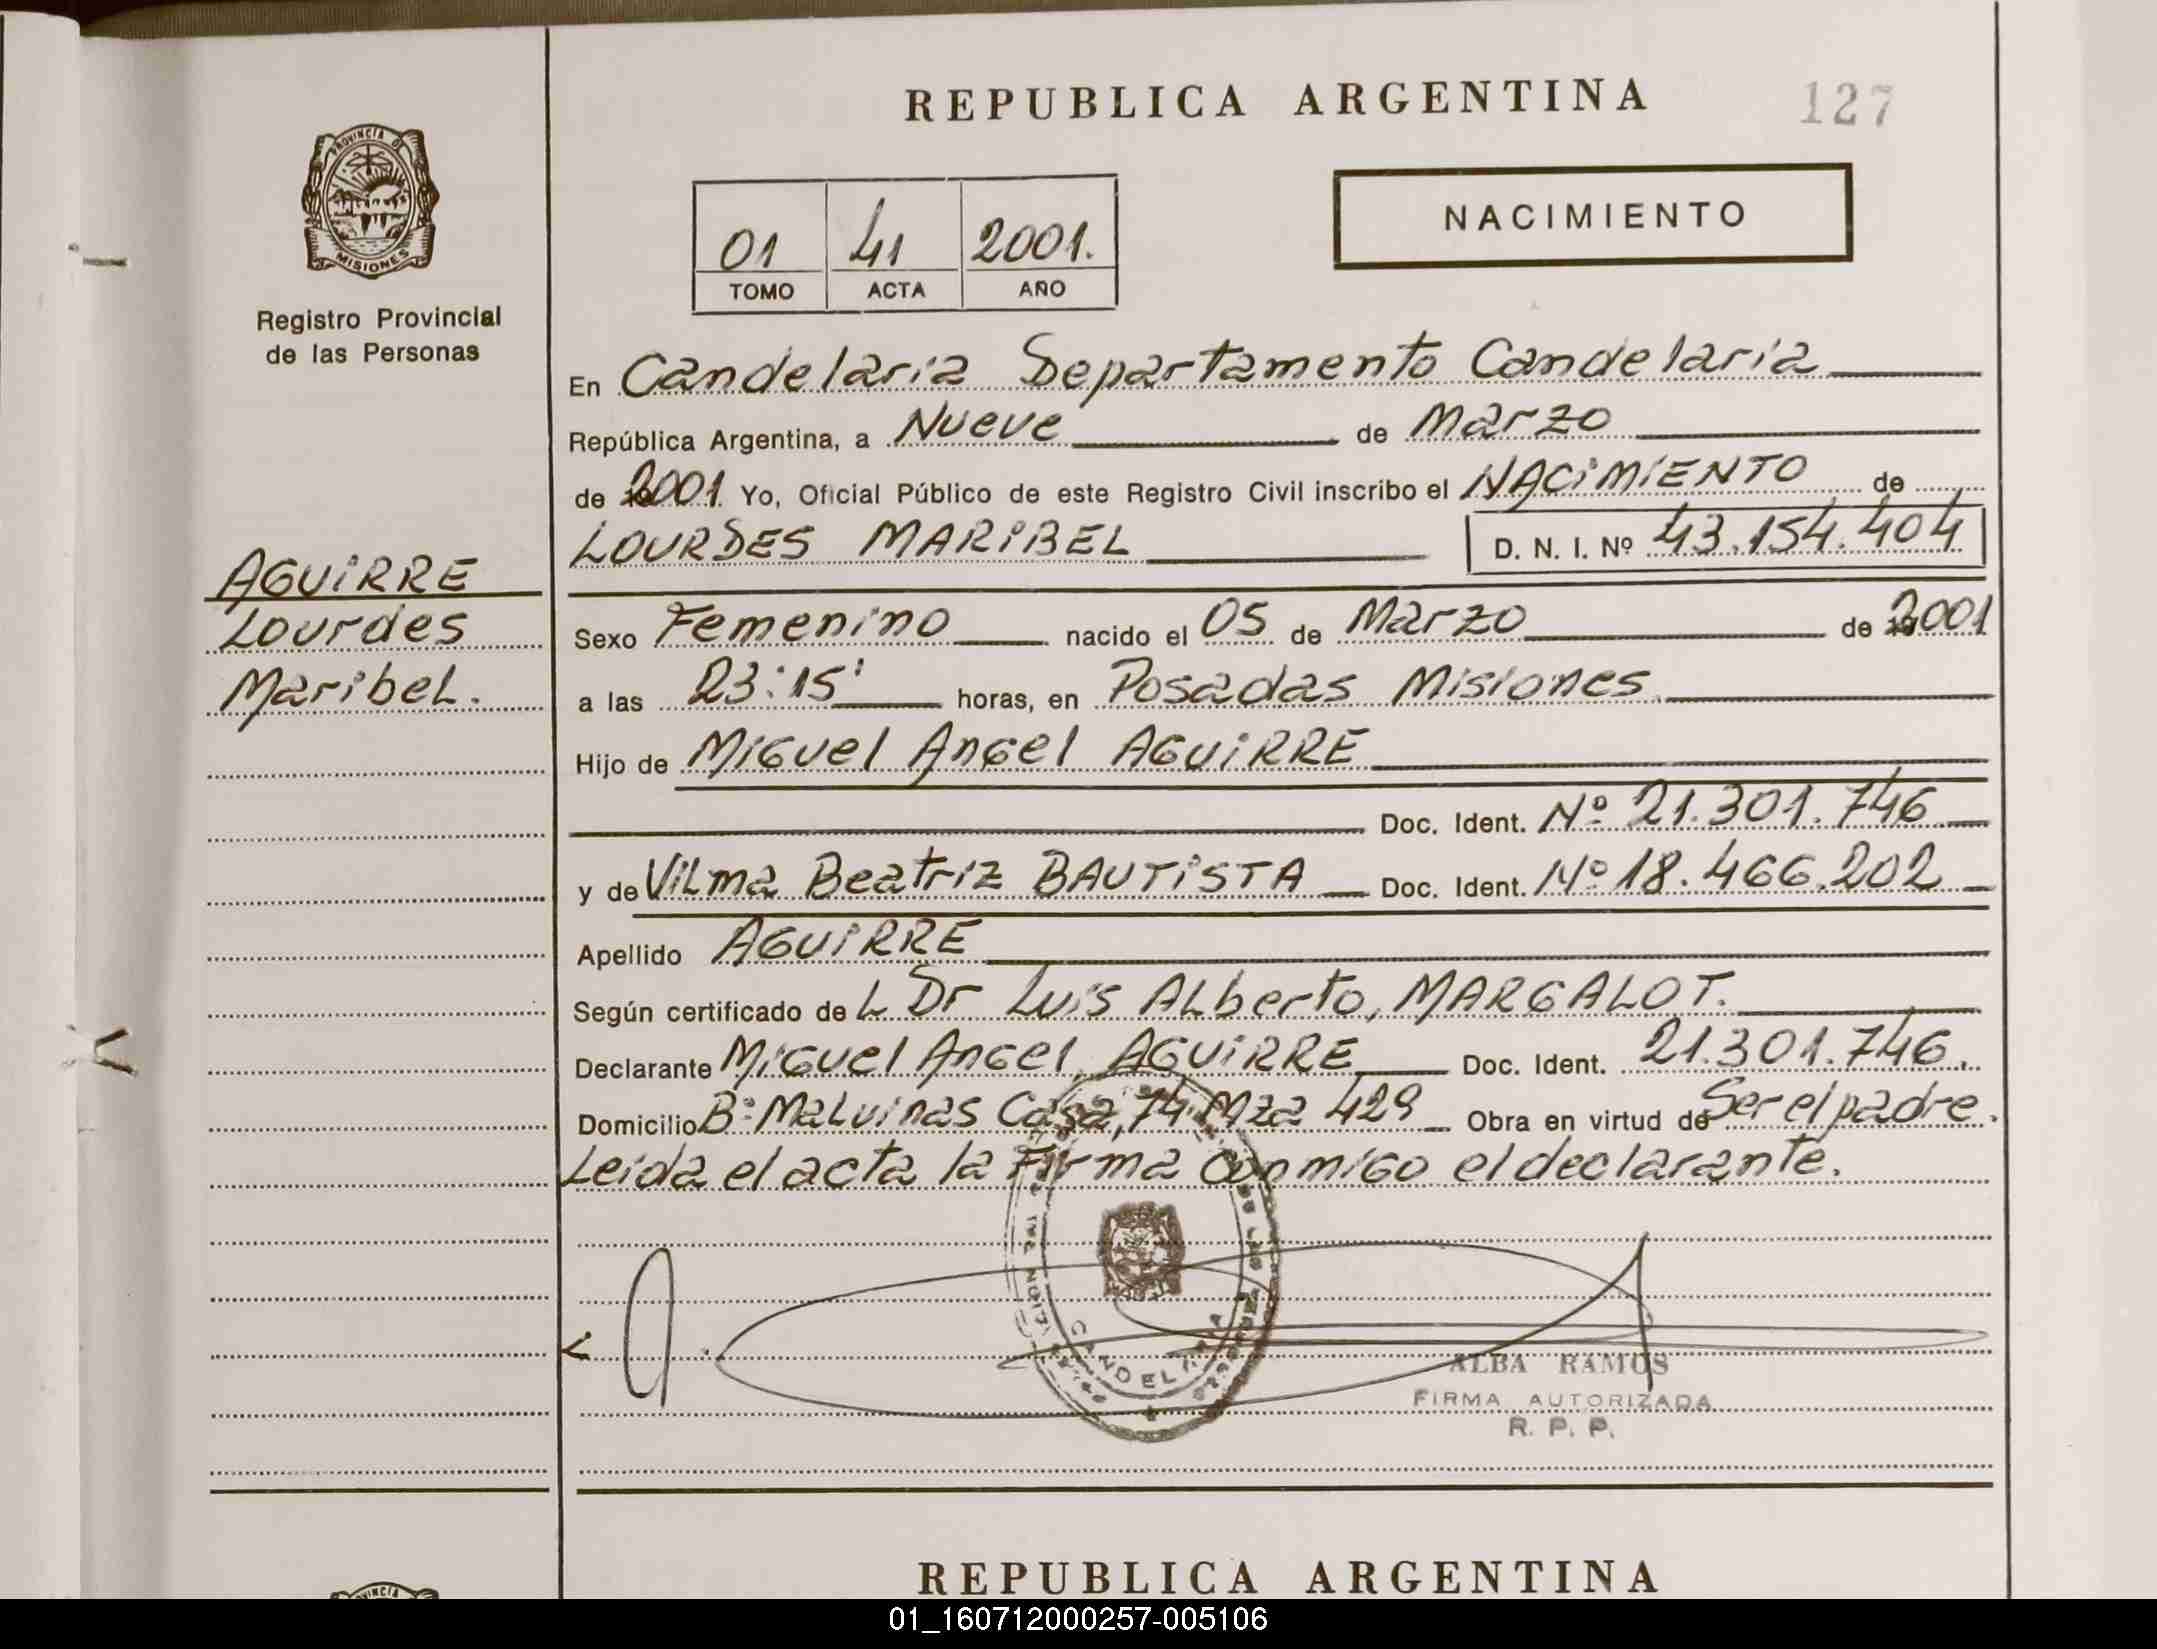 REPUBLICA ARGENTINA
127
PROVINCIA DE
MISIONES
Registro Provincial
de las Personas
01 41 2001.
TOMO ACTA AÑO
NACIMIENTO
En Candelaria Departamento Candelaria
República Argentina, a Nueve de Marzo
de 2001 Yo, Oficial Público de este Registro Civil inscribo el NACIMIENTO de
LOURDES MARIBEL D. N. I. Nº 43.154.404
AGUIRRE
Lourdes
Maribel.
Sexo Femenino nacido el 05 de Marzo de 2001
a las 23:15' horas, en Posadas Misiones
Hijo de Miguel Angel AGUIRRE
Doc. Ident. Nº 21.301.746
y de Vilma Beatriz BAUTISTA Doc. Ident. Nº 18.466.202
Apellido AGUIRRE
Según certificado de L Dr Luis Alberto, MARGALOT.
Declarante Miguel Angel, AGUIRRE Doc. Ident. 21.301.746.
Domicilio Bº Malvinas Casa, 74 Mza 429 Obra en virtud de Ser el padre.
Leida el acta la Firma conmigo el declarante.
CANDELARIA
ALBA RAMOS
FIRMA AUTORIZADA
R. P. P.
REPUBLICA ARGENTINA
01_160712000257-005106